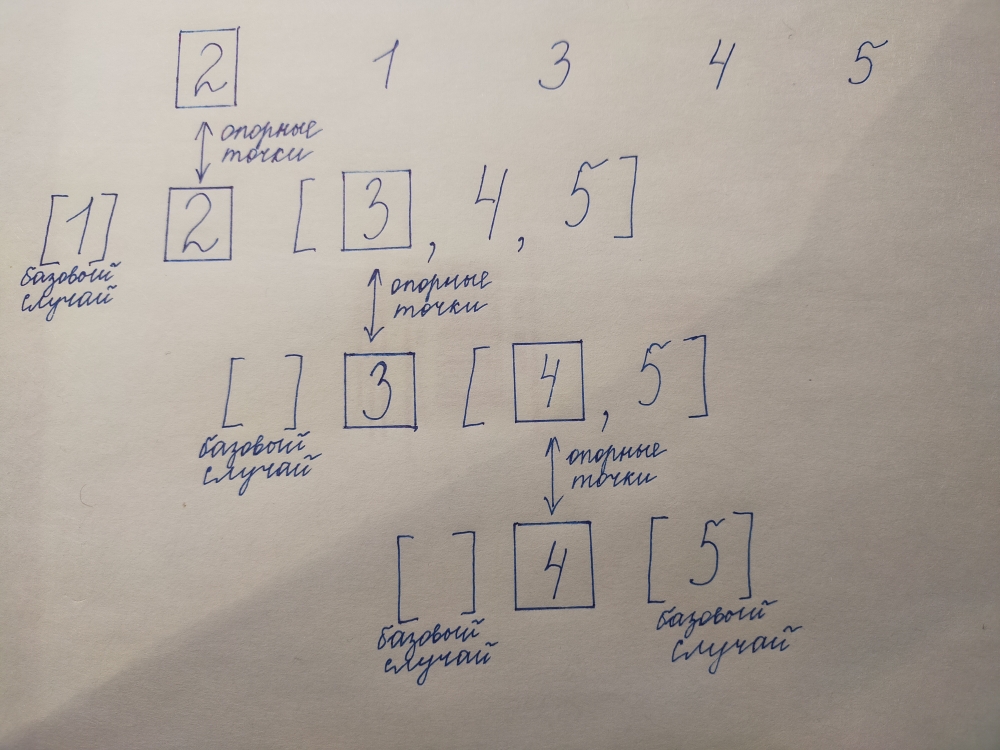 2 1 3 4 5
опорные
точки
[1] 2 [3, 4, 5]
базовый
случай
опорные
точки
[ ] 3 [4, 5]
базовый
случай
опорные
точки
[ ] 4 [5]
базовый
случай
базовый
случай